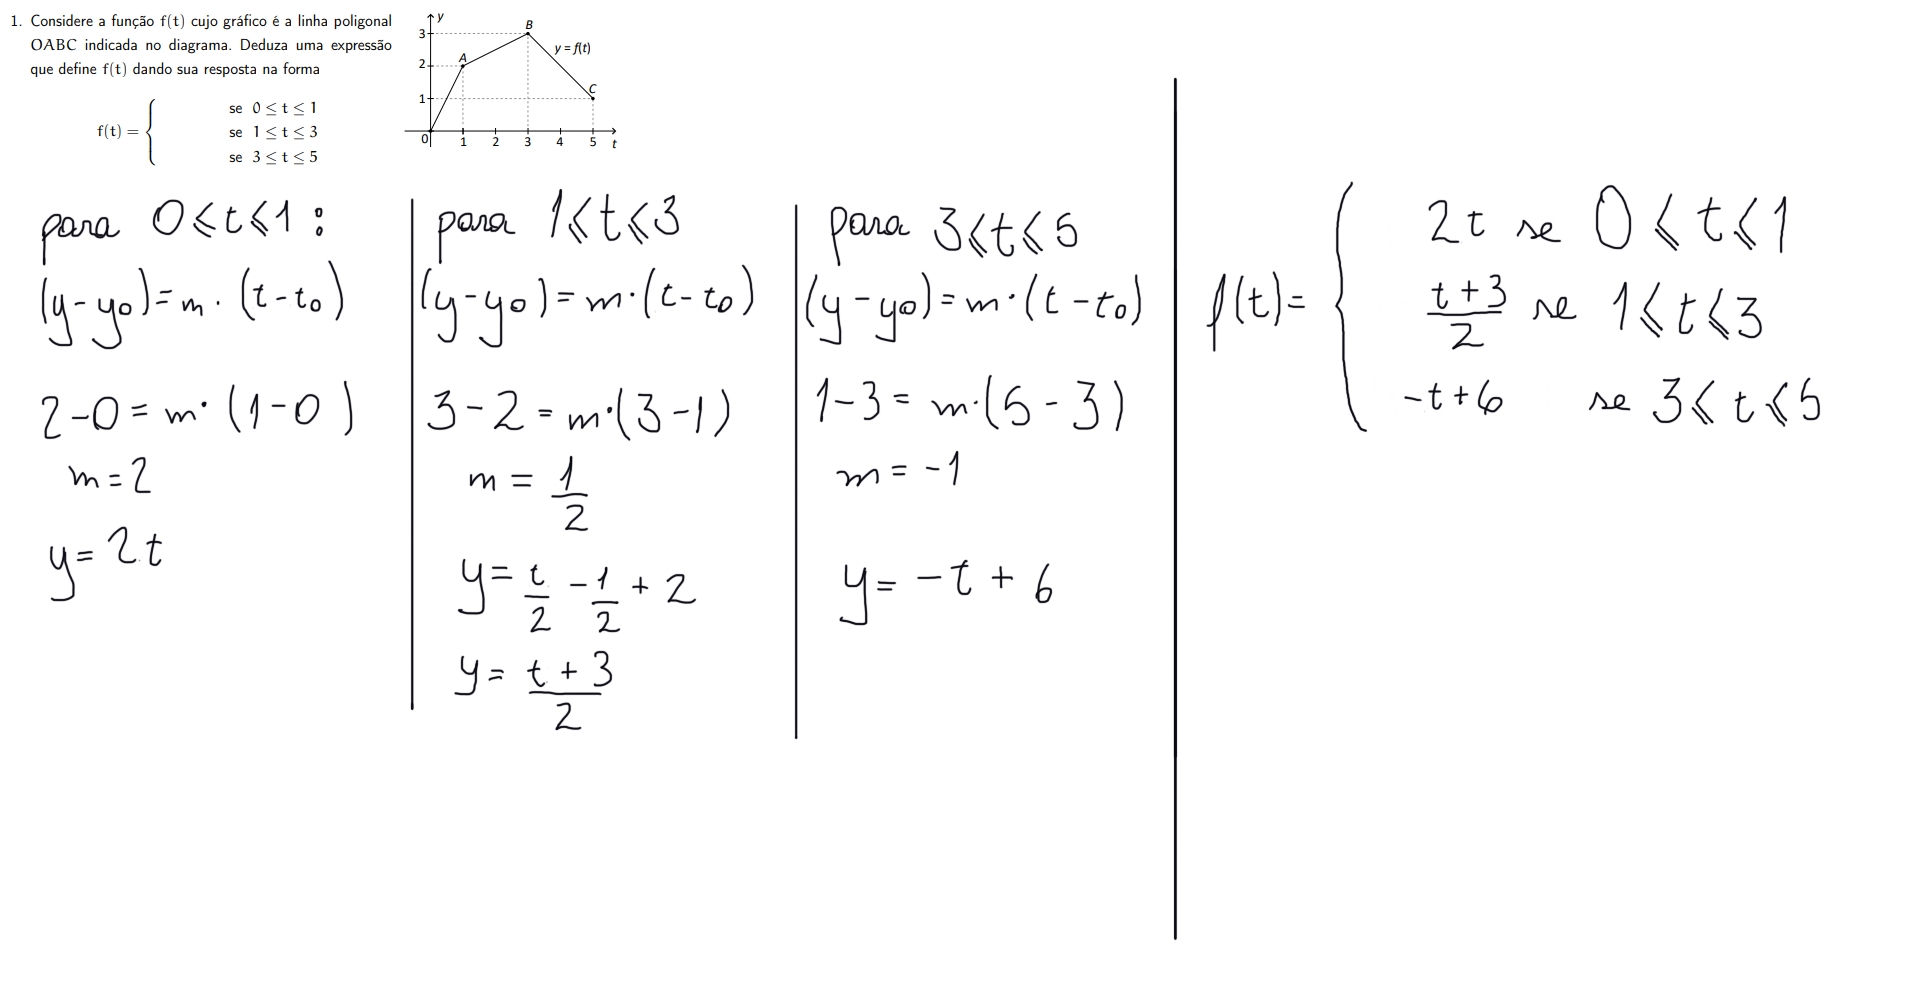 1. Considere a função f(t) cujo gráfico é a linha poligonal
OABC indicada no diagrama. Deduza uma expressão
que define f(t) dando sua resposta na forma
f(t) = {
se 0 ≤ t ≤ 1
se 1 ≤ t ≤ 3
se 3 ≤ t ≤ 5
y
3
2
1
0
1 2 3 4 5 t
A
B
C
y = f(t)
para 0 ≤ t ≤ 1 :
(y - y0) = m · (t - t0)
2 - 0 = m · (1 - 0)
m = 2
y = 2t
para 1 ≤ t ≤ 3
(y - y0) = m · (t - t0)
3 - 2 = m · (3 - 1)
m = 1/2
y = t/2 - 1/2 + 2
y = (t + 3)/2
para 3 ≤ t ≤ 5
(y - y0) = m · (t - t0)
1 - 3 = m · (5 - 3)
m = -1
y = -t + 6
f(t) = {
2t se 0 ≤ t ≤ 1
(t + 3)/2 se 1 ≤ t ≤ 3
-t + 6 se 3 ≤ t ≤ 5